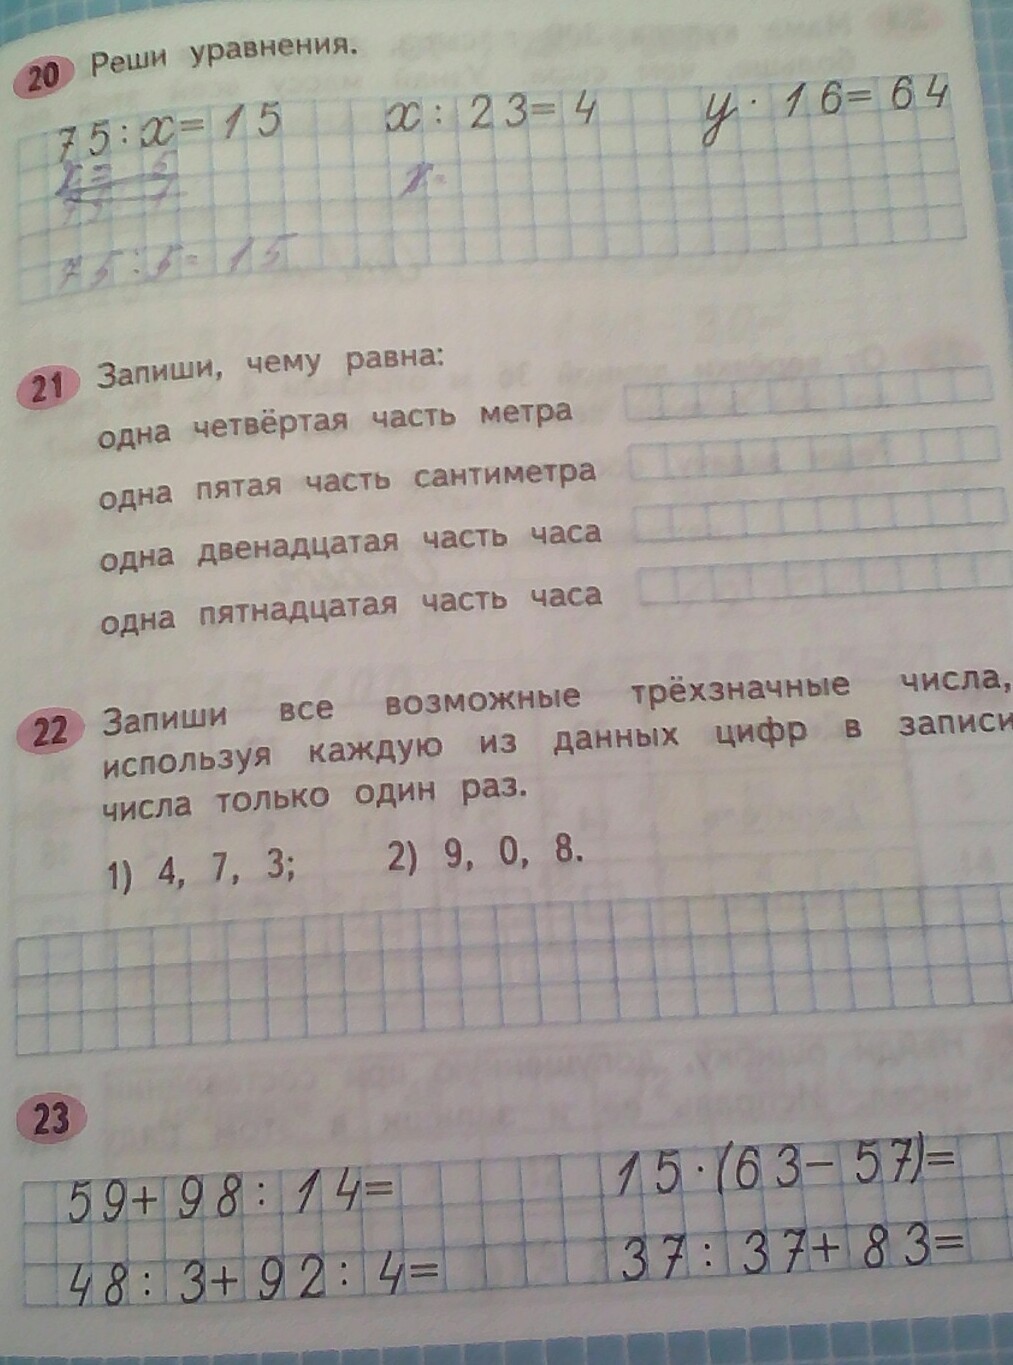 20 Реши уравнения.
75 : x = 15 x : 23 = 4 y · 16 = 64
x = 5
x =
75 : 5 = 15
21 Запиши, чему равна:
одна четвёртая часть метра
одна пятая часть сантиметра
одна двенадцатая часть часа
одна пятнадцатая часть часа
22 Запиши все возможные трёхзначные числа,
используя каждую из данных цифр в записи
числа только один раз.
1) 4, 7, 3; 2) 9, 0, 8.
23
59 + 98 : 14 = 15 · (63 − 57) =
48 : 3 + 92 : 4 = 37 : 37 + 83 =